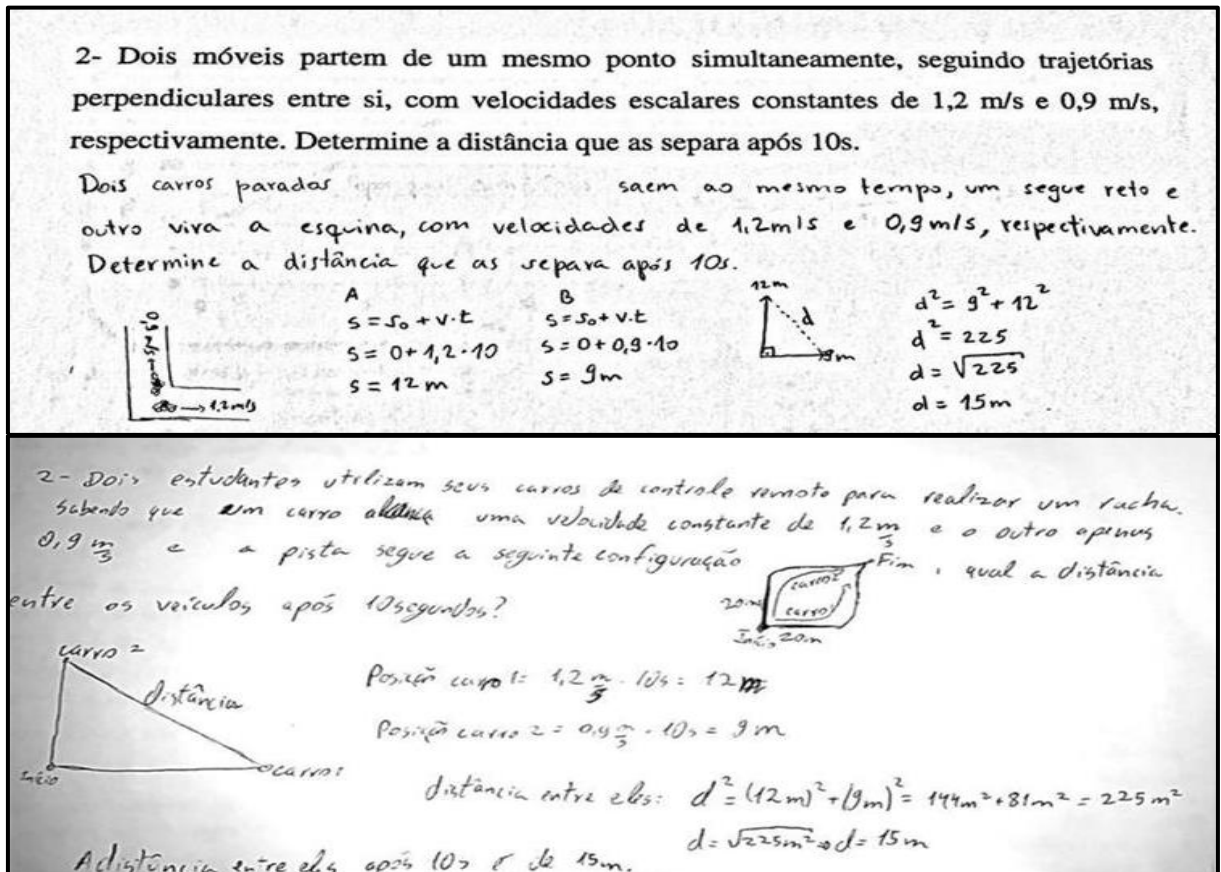 2- Dois móveis partem de um mesmo ponto simultaneamente, seguindo trajetórias
perpendiculares entre si, com velocidades escalares constantes de 1,2 m/s e 0,9 m/s,
respectivamente. Determine a distância que as separa após 10s.
Dois carros parados saem ao mesmo tempo, um segue reto e
outro vira a esquina, com velocidades de 1,2m/s e 0,9m/s, respectivamente.
Determine a distância que as separa após 10s.
0,9 m/s
1,2m/s
A
S = S₀ + v.t
S = 0 + 1,2 · 10
S = 12 m
B
S = S₀ + v.t
S = 0 + 0,9 · 10
S = 9m
12m
d
9m
d² = 9² + 12²
d² = 225
d = √225
d = 15m
2- Dois estudantes utilizam seus carros de controle remoto para realizar um racha.
Sabendo que um carro uma velocidade constante de 1,2 m/s e o outro apenas
0,9 m/s e a pista segue a seguinte configuração , qual a distância
20m
carro 2
carro 1
Fim
Início 20m
entre os veículos após 10 segundos?
carro 2
distância
Início
carro 1
Posição carro 1 = 1,2 m/s · 10s = 12m
Posição carro 2 = 0,9 m/s · 10s = 9m
distância entre eles: d² = (12m)² + (9m)² = 144m² + 81m² = 225m²
d = √225m² ⇒ d = 15m
A distância entre eles após 10s é de 15m.